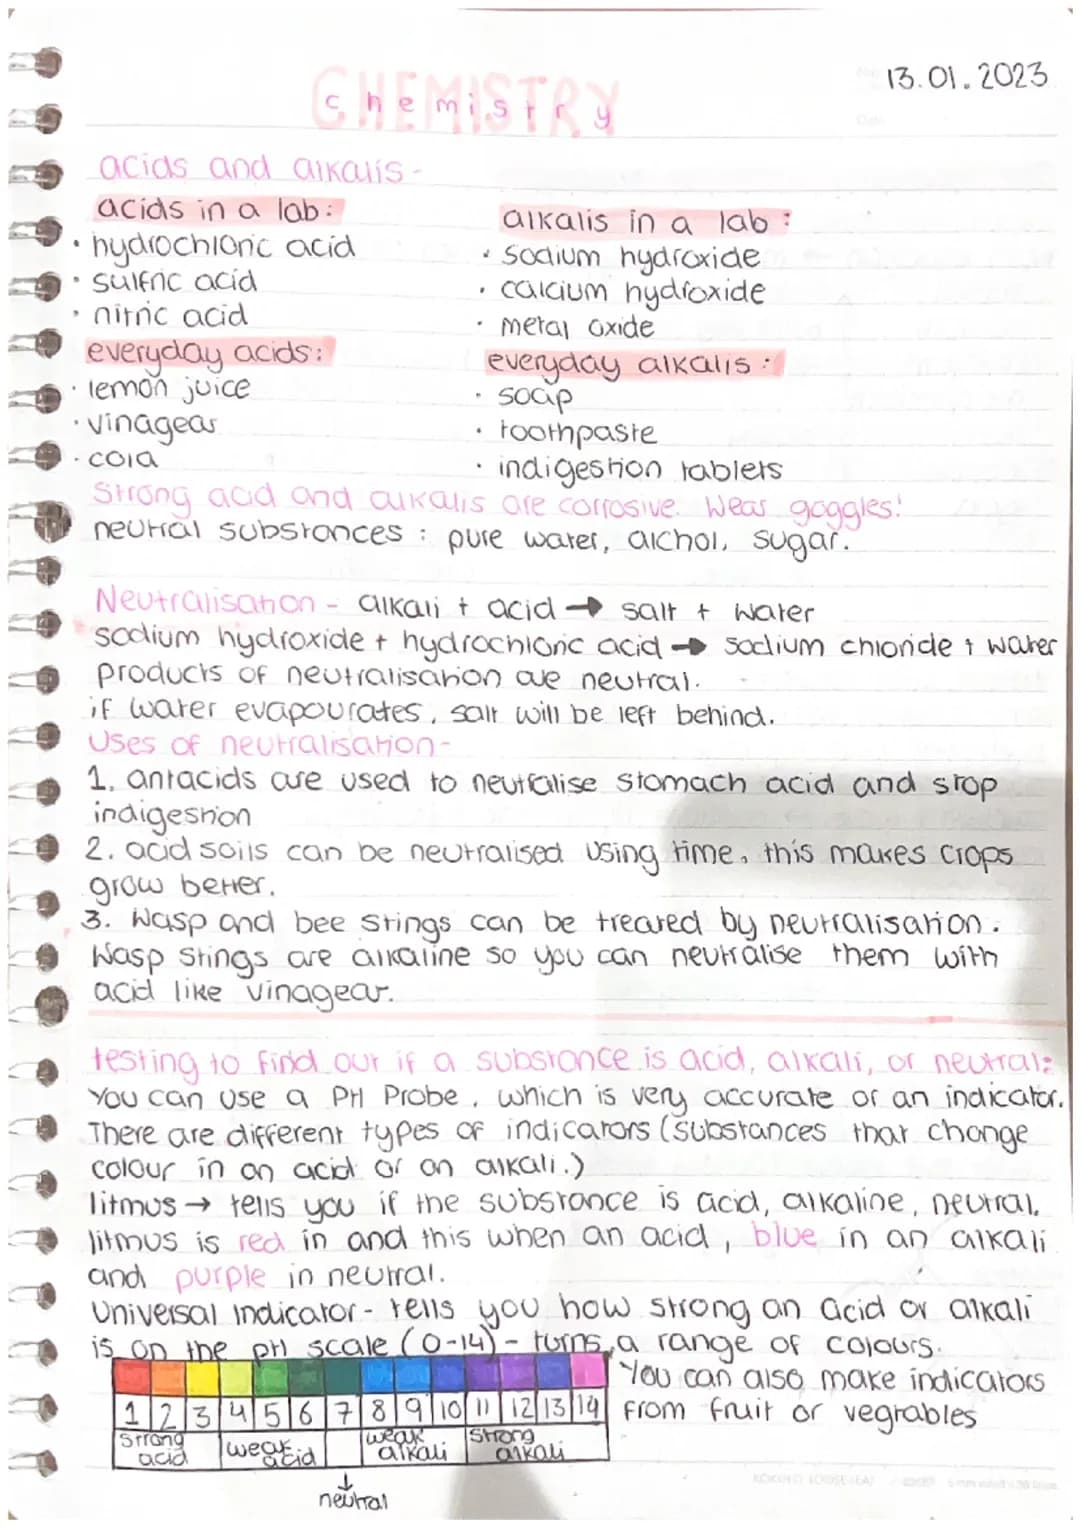 13.01.2023
CHEMISTRY
chemistry
acids and alkalis -
acids in a lab:
· hydrochloric acid
· sulfric acid
· nitric acid
everyday acids:
· lemon juice
· vinagear
· cola
alkalis in a lab:
· sodium hydroxide
· calcium hydroxide
· metal oxide
everyday alkalis:
· soap
· toothpaste
· indigestion tablets
Strong acid and alkalis are corrosive. Wear goggles!
neutral substances: pure water, alchol, sugar.
Neutralisation - alkali + acid → salt + water
sodium hydroxide + hydrochloric acid → sodium chloride + water
products of neutralisation are neutral.
if water evapourates, salt will be left behind.
Uses of neutralisation-
1. antacids are used to neutralise stomach acid and stop
indigestion
2. acid soils can be neutralised using time, this makes crops
grow better.
3. Wasp and bee stings can be treated by neutralisation.
Wasp stings are alkaline so you can neutralise them with
acid like vinagear.
testing to find out if a substance is acid, alkali, or neutral:
You can use a PH Probe, which is very accurate or an indicator.
There are different types of indicators (substances that change
colour in an acid or an alkali.)
litmus → tells you if the substance is acid, alkaline, neutral.
litmus is red in and this when an acid, blue in an alkali
and purple in neutral.
Universal indicator- tells you how strong an acid or alkali
is on the pH scale (0-14) - turns a range of colours.
You can also make indicators
from fruit or vegrables
1 2 3 4 5 6 7 8 9 10 11 12 13 14
strong acid
weak acid
weak alkali
strong alkali
neutral